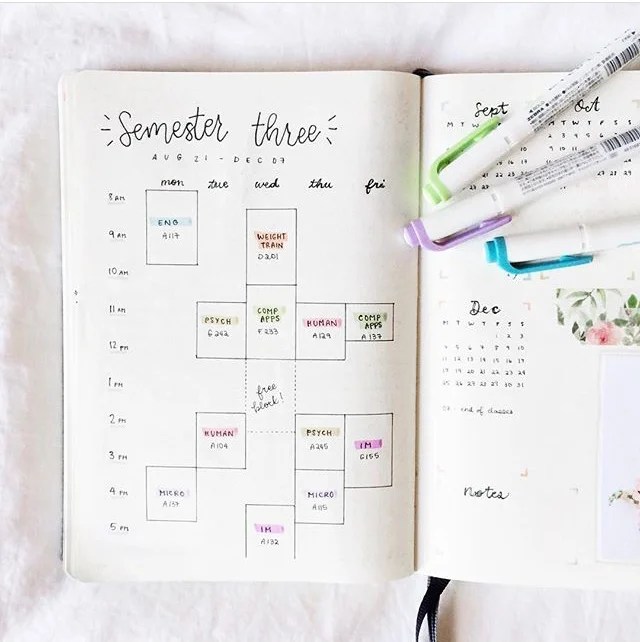 Semester three
AUG 21 - DEC 07
mon tue wed thu fri
8 AM
ENG
A117
9 AM
WEIGHT
TRAIN
D201
10 AM
11 AM
PSYCH
G242
COMP
APPS
F233
HUMAN
A129
COMP
APPS
A137
12 PM
1 PM
free
block!
2 PM
HUMAN
A104
PSYCH
A245
IM
G155
3 PM
4 PM
MICRO
A137
MICRO
A115
5 PM
IM
A132
Sept
Oct
Dec
M T W T F S S
1 2 3
4 5 6 7 8 9 10
11 12 13 14 15 16 17
18 19 20 21 22 23 24
25 26 27 28 29 30 31
07 - end of classes
Notes